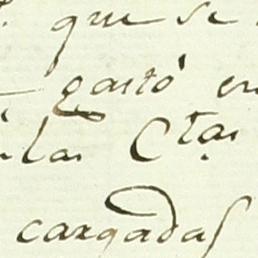 que se
gastó en
las C.tas
cargadas